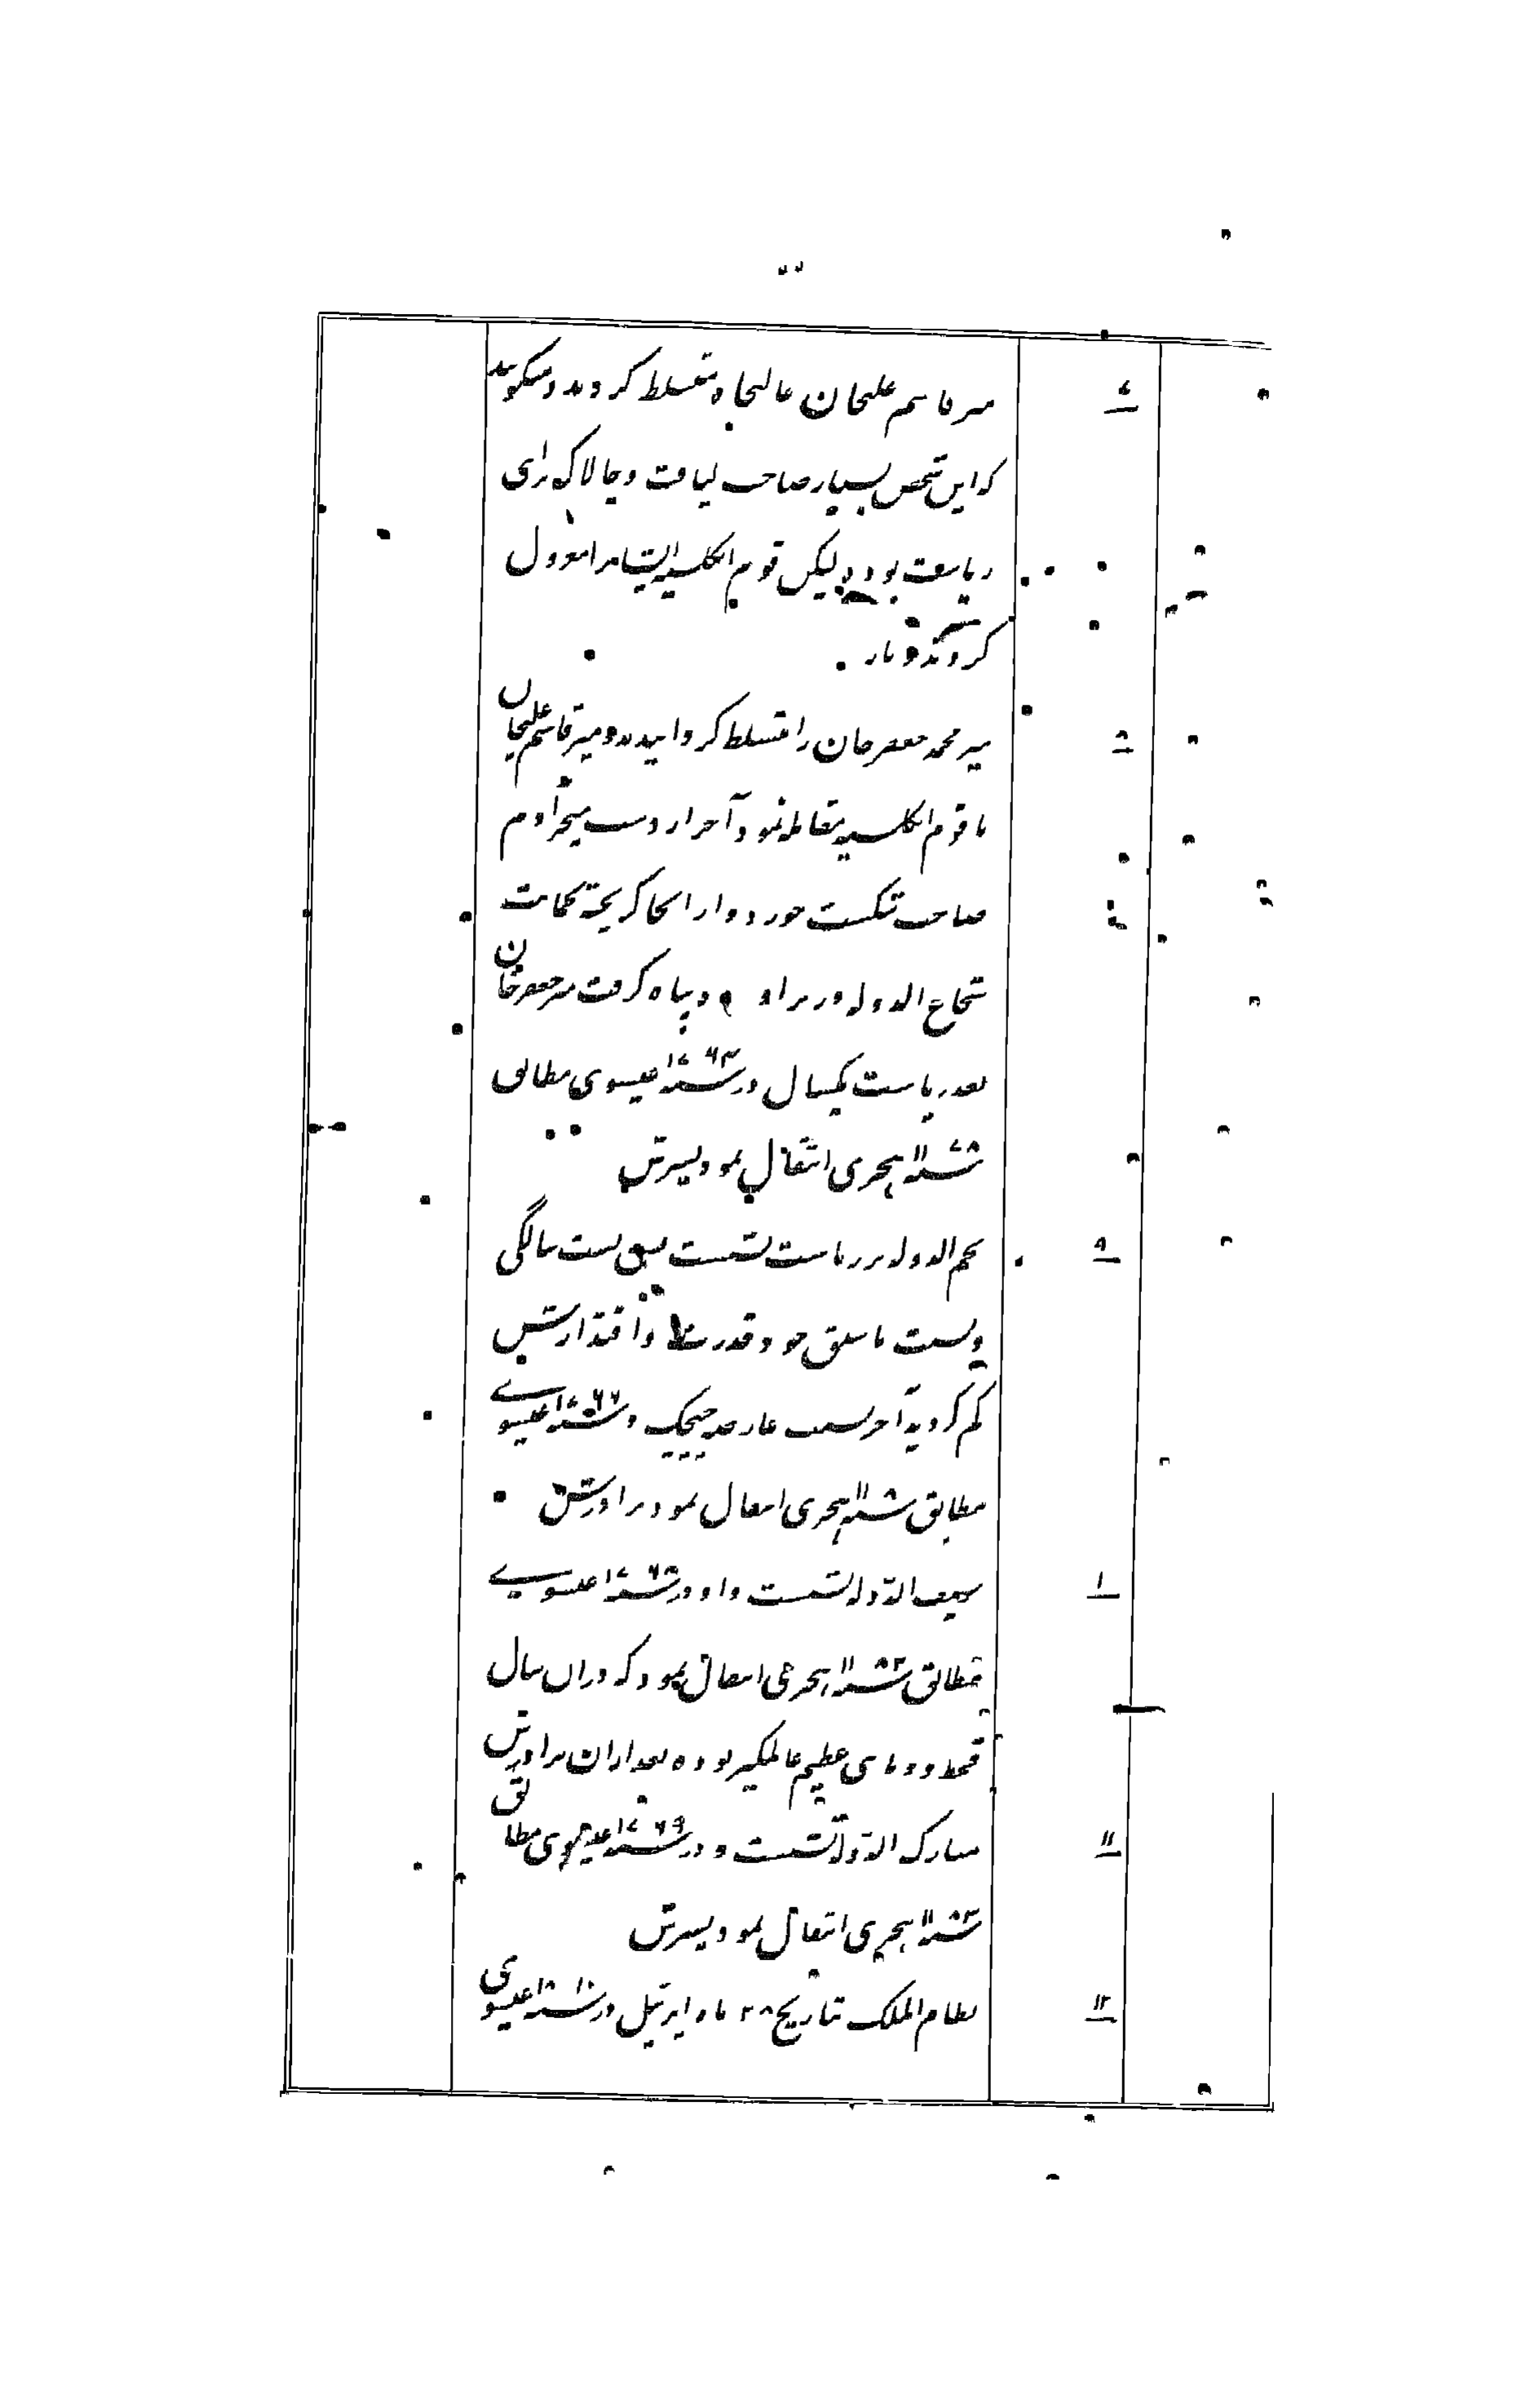 ۷ میر قاسم علیخان عالیجاه متسلط کردند و میگویند
که این شخص بسیار صاحب لیاقت و چالاک برای
ریاست بود لیکن قوم انگلیسیه ایشانرا معزول
کردند و باز
۸ میر محمد جعفر خان را متسلط گردانیدند و میر قاسم علیخان
با قوم انگلیسیه مقابله نمود آخر از دست میجر آدم
صاحب شکست خورد و از آنجا گریخته بحمایت
شجاع الدوله وزیر پناه گرفت میر جعفر خان
بعد ریاست یکسال در سنه ۱۷۶۳ عیسوی مطابق
سنه ۱۱۷۸ هجری انتقال نمود پسرش
۹ نجم الدوله بر ریاست نشست بسن بست سالگی
کم گردید آخر بسبب عارضه چیچک در سنه ۱۷۶۶ عیسوی
مطابق سنه هجری انتقال نمود برادرش
۱۰ سیف الدوله نشست و او در سنه ۱۷۶۸ عیسوی
مطابق سنه ۱۱۸۲ هجری انتقال نمود که در آن سال
قحط و وبای عظیم عالمگیر بوده بعد ازان برادرش
۱۱ مبارک الدوله نشست و در سنه ۱۷۶۹ عیسوی مطابق
سنه ۱۱۸۳ هجری انتقال نمود پسرش
۱۲ نظام الملک بتاریخ ۲۸ ماه اپریل در سنه ۱۸۱۰ عیسوی